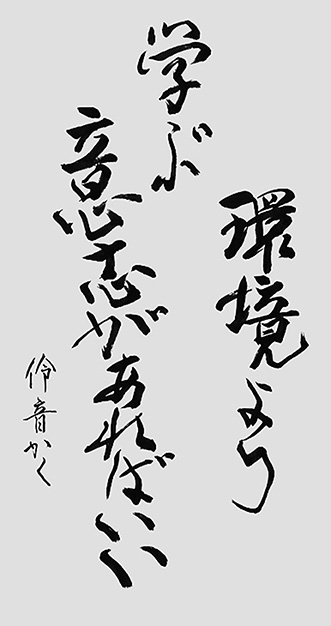 環境より
学ぶ
意志があればいい
伶音かく